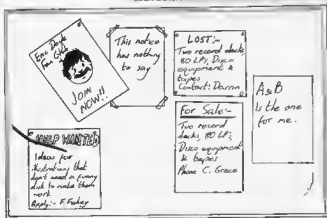 Fan Club
JOIN
NOW!!
This notice
has nothing
to say
LOST:-
Two record decks,
80 LP's, Disco
equipment &
tapes
Contact: Darrin
For Sale:-
Two record
decks, 80 LP's,
Disco equipment
& tapes
Phone C. Grace
A&B
Is the one
for me.
HELP WANTED
Ideas for
illustrations that
don't need a funny
to make them
work
Apply:- F. Fahey